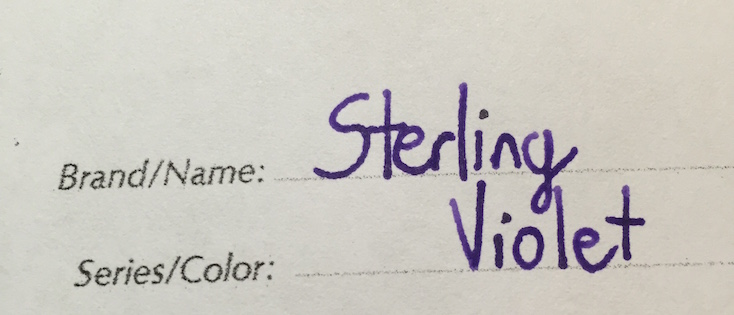 Brand/Name: Sterling
Series/Color: Violet